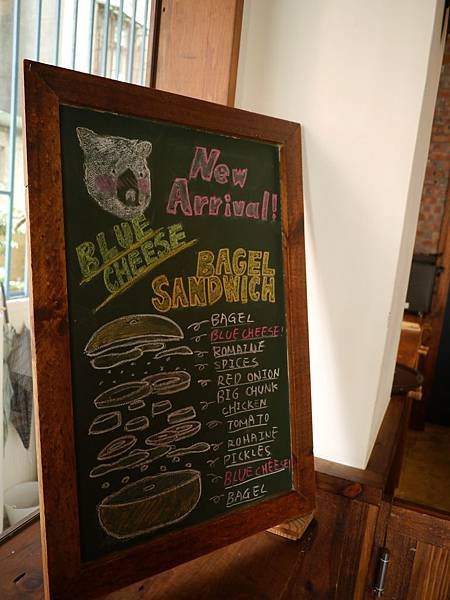 New
Arrival!
BLUE
CHEESE
BAGEL
SANDWICH
BAGEL
BLUE CHEESE!
ROMAINE
SPICES
RED ONION
BIG CHUNK
CHICKEN
TOMATO
ROMAINE
PICKLES
BLUE CHEESE!
BAGEL